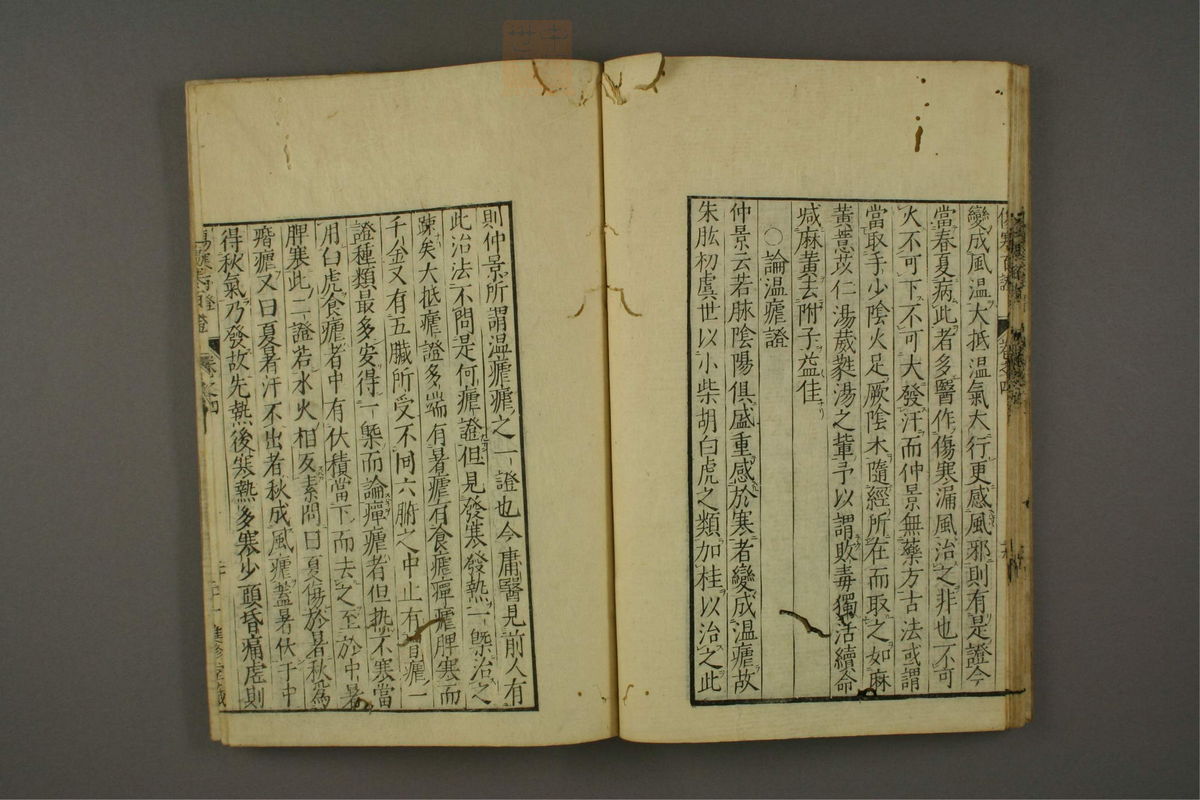 變成風温大抵温氣大行更感風邪則有是證今
當春夏病此者多醫作傷寒漏風治之非也不可
火不可下不可大發汗而仲景無藥方古法或謂
當取手少陰火足厥陰木隨經所在而取之如麻
黄薏苡仁湯葳蕤湯之輩予以謂敗毒獨活續命
減麻黄去附子益佳
○論温瘧證
仲景云若脉陰陽俱盛重感於寒者變成温瘧故
朱肱初虞世以小柴胡白虎之類加桂以治之此
則仲景所謂温瘧瘧之一證也今庸醫見前人有
此治法不問是何瘧證但見發寒發熱一槩治之
踈矣大抵瘧證多端有暑瘧有食瘧癉瘧脾寒而
千金又有五臟所受不同六腑之中止有胃瘧一
證種類最多安得一槩而論癉瘧者但熱不寒當
用白虎食瘧者中有伏積當下而去之至於中暑
脾寒此二證若水火相反素問曰夏傷於暑秋爲
痎瘧又曰夏暑汗不出者秋成風瘧蓋暑伏于中
得秋氣乃發故先熱後寒熱多寒少頭昏痛虚則
卷之四